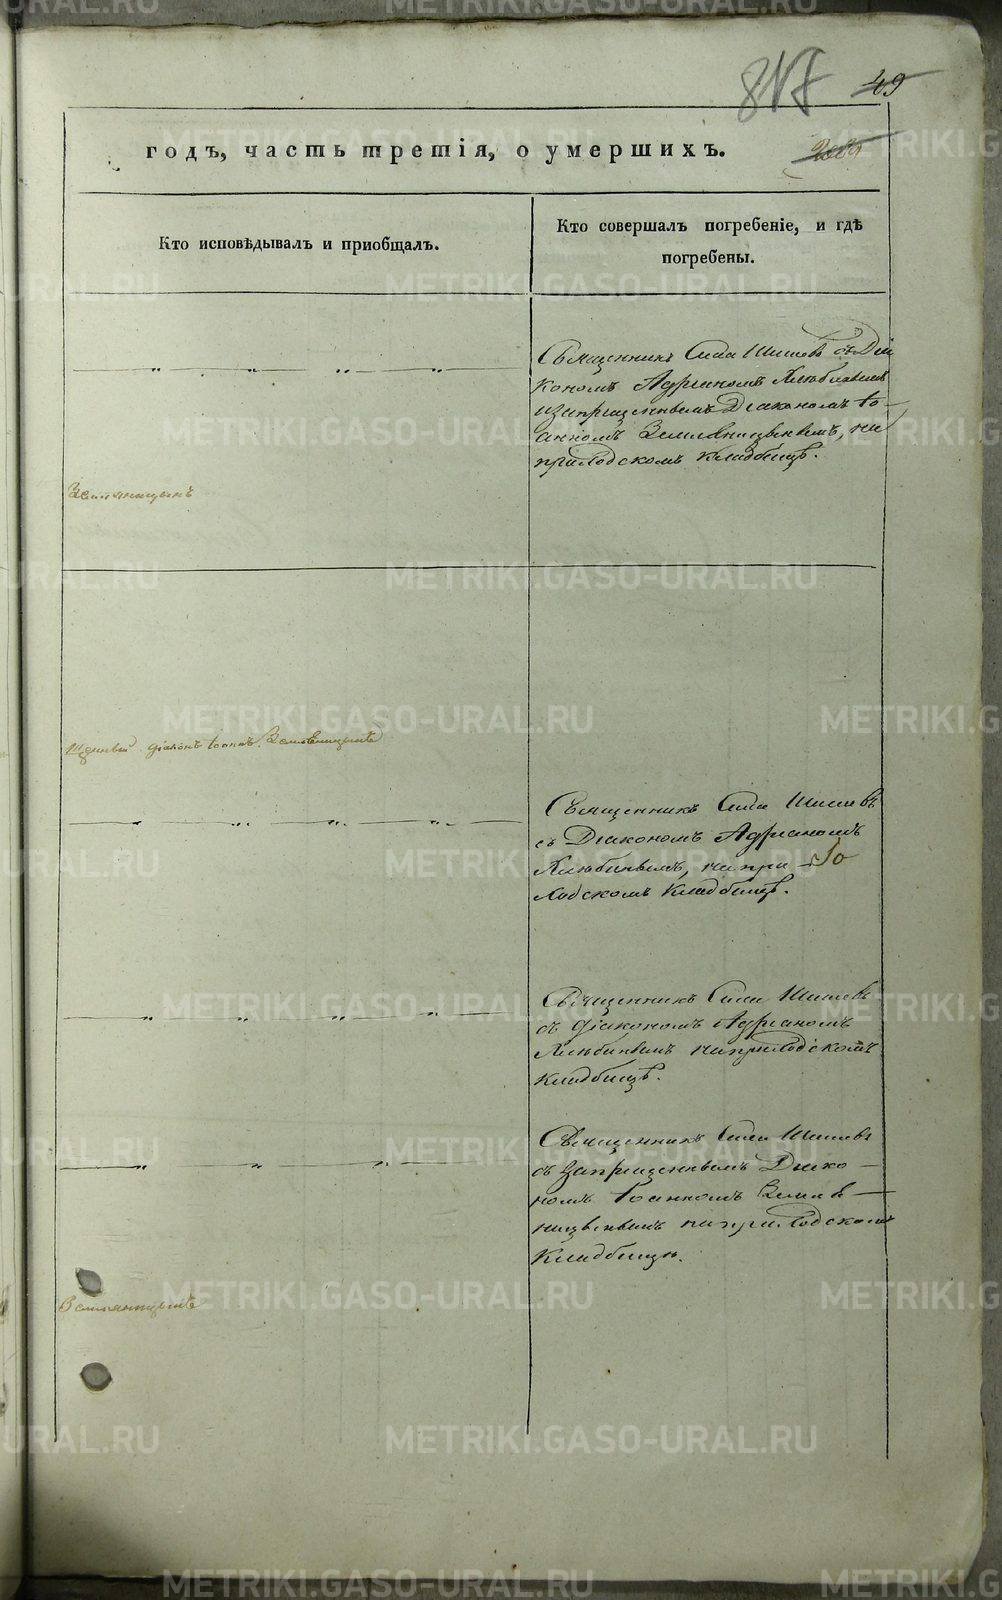 817 49
годъ, часть третія, о умершихъ.
Кто исповѣдывалъ и пріобщалъ.
Кто совершалъ погребеніе, и гдѣ
погребены.
Священникъ Сила Шишевъ съ Діа
кономъ Адріаномъ Хлюбинымъ
и запрещеннымъ Діакономъ Іо-
анномъ Земляницынымъ, на
приходскомъ кладбищѣ.
Земляницынъ
діаконъ Іоаннъ Земляницынъ
Священникъ Сила Шишевъ
съ Діакономъ Адріаномъ
Хлюбинымъ, на при-
ходскомъ кладбищѣ.
Священникъ Сила Шишевъ
съ діакономъ Адріаномъ
Хлюбинымъ на приходскомъ
кладбищѣ.
Священникъ Сила Шишевъ
съ запрещеннымъ Діако-
номъ Іоанномъ Земля-
ницынымъ на приходскомъ
кладбищѣ.
Земляницынъ
METRIKI.GASO-URAL.RU